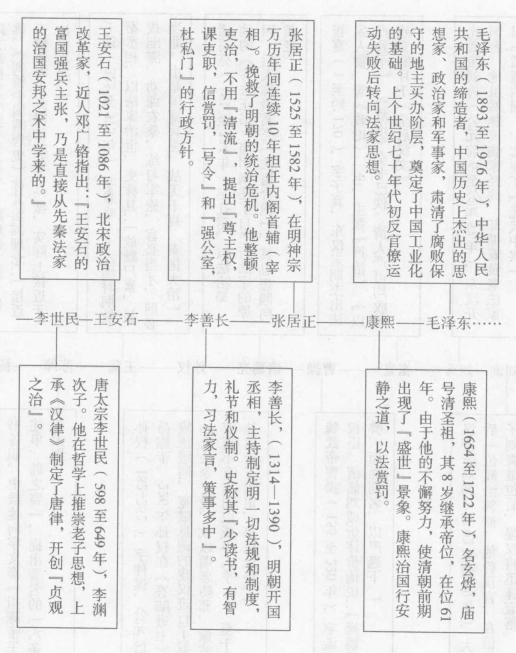 毛泽东（1893 至 1976 年），中华人民
共和国的缔造者，中国历史上杰出的思
想家、政治家和军事家，肃清了腐败保
守的地主买办阶层，奠定了中国工业化
的基础。上个世纪七十年代初反官僚运
动失败后转向法家思想。
张居正（1525 至 1582 年），在明神宗
万历年间连续 10 年担任内阁首辅（宰
相）。挽救了明朝的统治危机。他整顿
吏治，不用『清流』，提出『尊主权，
课吏职，信赏罚，一号令』和『强公室，
杜私门』的行政方针。
王安石（1021 至 1086 年），北宋政治
改革家，近人邓广铭指出：『王安石的
富国强兵主张，乃是直接从先秦法家
的治国安邦之术中学来的。』
—李世民—王安石——李善长——张居正——康熙——毛泽东……
康熙（1654 至 1722 年），名玄烨，庙
号清圣祖，其 8 岁继承帝位，在位 61
年。由于他的不懈努力，使清朝前期
出现了『盛世』景象。康熙治国行安
静之道，以法赏罚。
李善长，（1314—1390），明朝开国
丞相，主持制定明一切法规和制度，
礼节和仪制。史称其『少读书，有智
力，习法家言，策事多中』。
唐太宗李世民（598 至 649 年），李渊
次子。他在哲学上推崇老子思想，上
承《汉律》制定了唐律，开创『贞观
之治』。